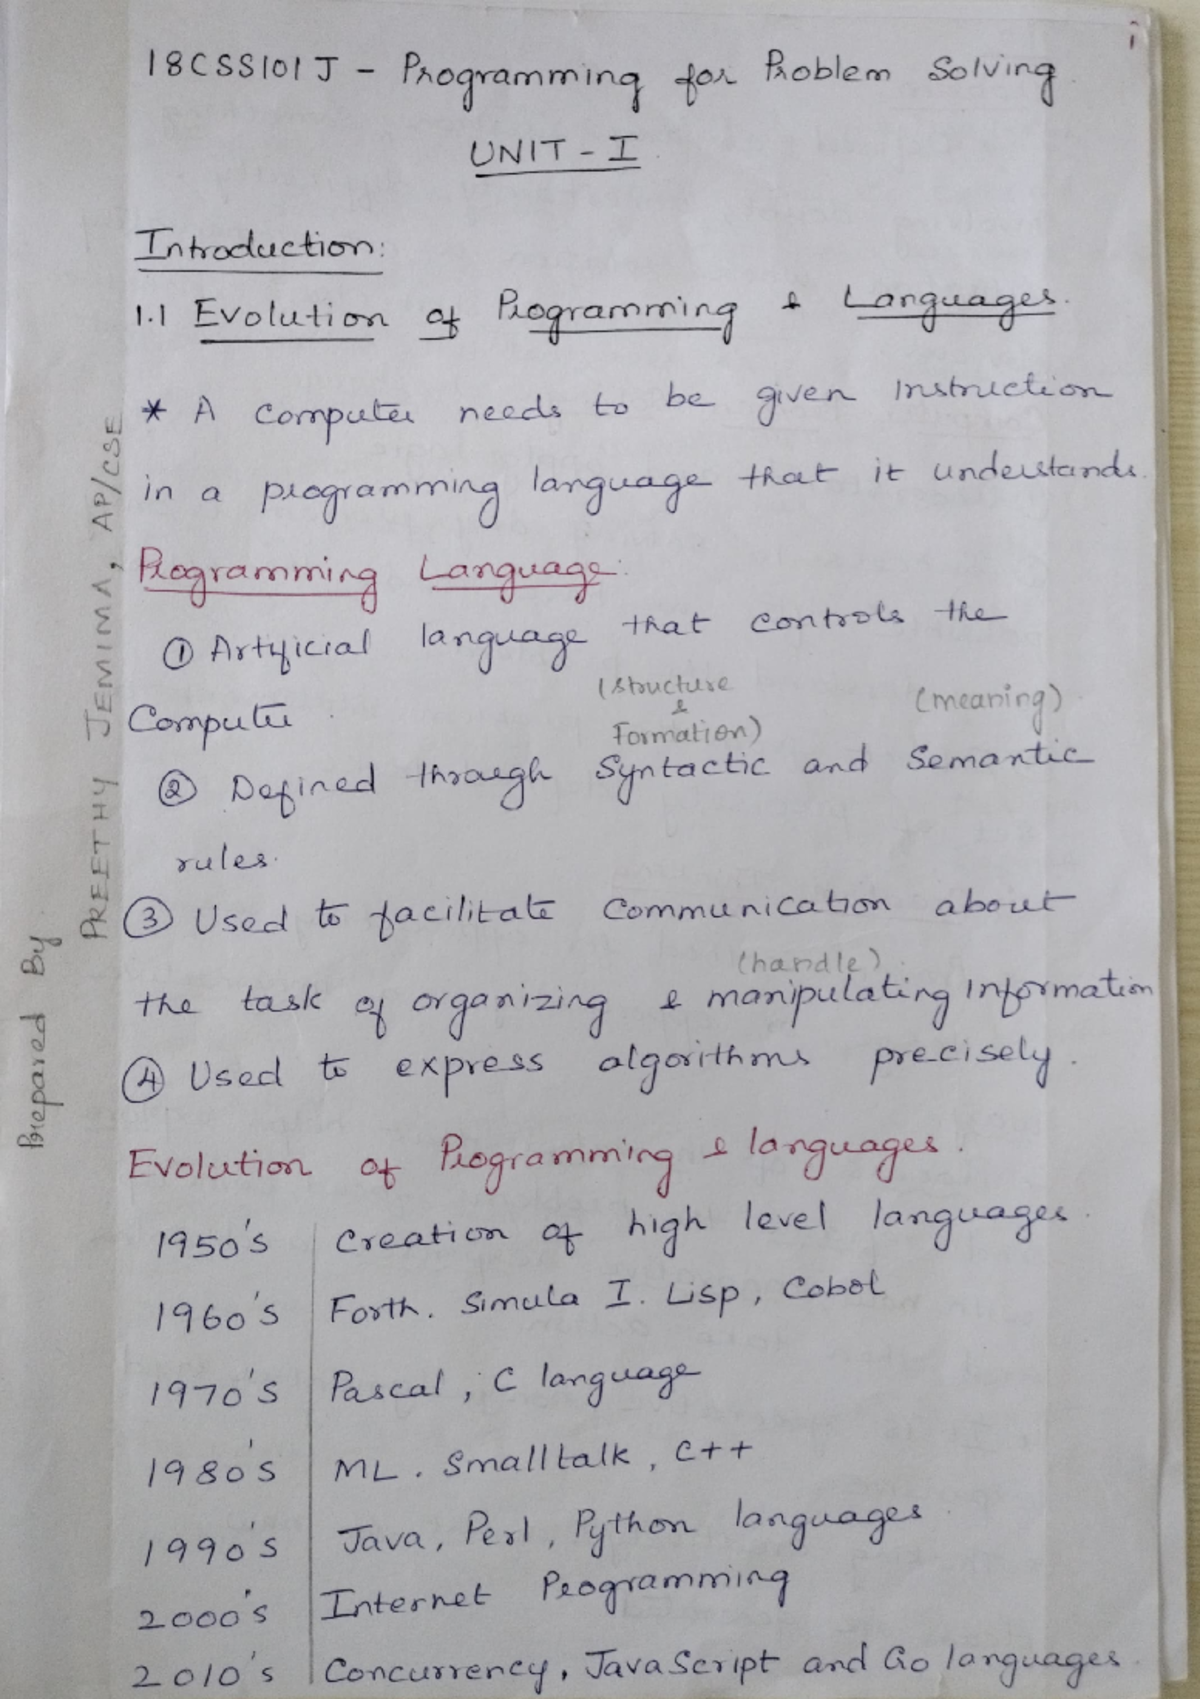 18CSS101J - Programming for Problem Solving
UNIT - I
Introduction:
1.1 Evolution of Programming & Languages.
* A computer needs to be given Instruction
in a programming language that it understands.
Programming Language:
① Artificial language that controls the
Computer.
(structure
&
Formation) (meaning)
② Defined through Syntactic and Semantic
rules.
③ Used to facilitate communication about
(handle)
the task of organizing & manipulating Information
④ Used to express algorithms precisely.
Evolution of Programming & languages.
1950's Creation of high level languages.
1960's Forth. Simula I. Lisp, Cobol
1970's Pascal, C language
1980's ML. Smalltalk, C++
1990's Java, Perl, Python languages
2000's Internet Programming
2010's Concurrency, JavaScript and Go languages.
Prepared By
PREETHY JEMIMA, AP/CSE